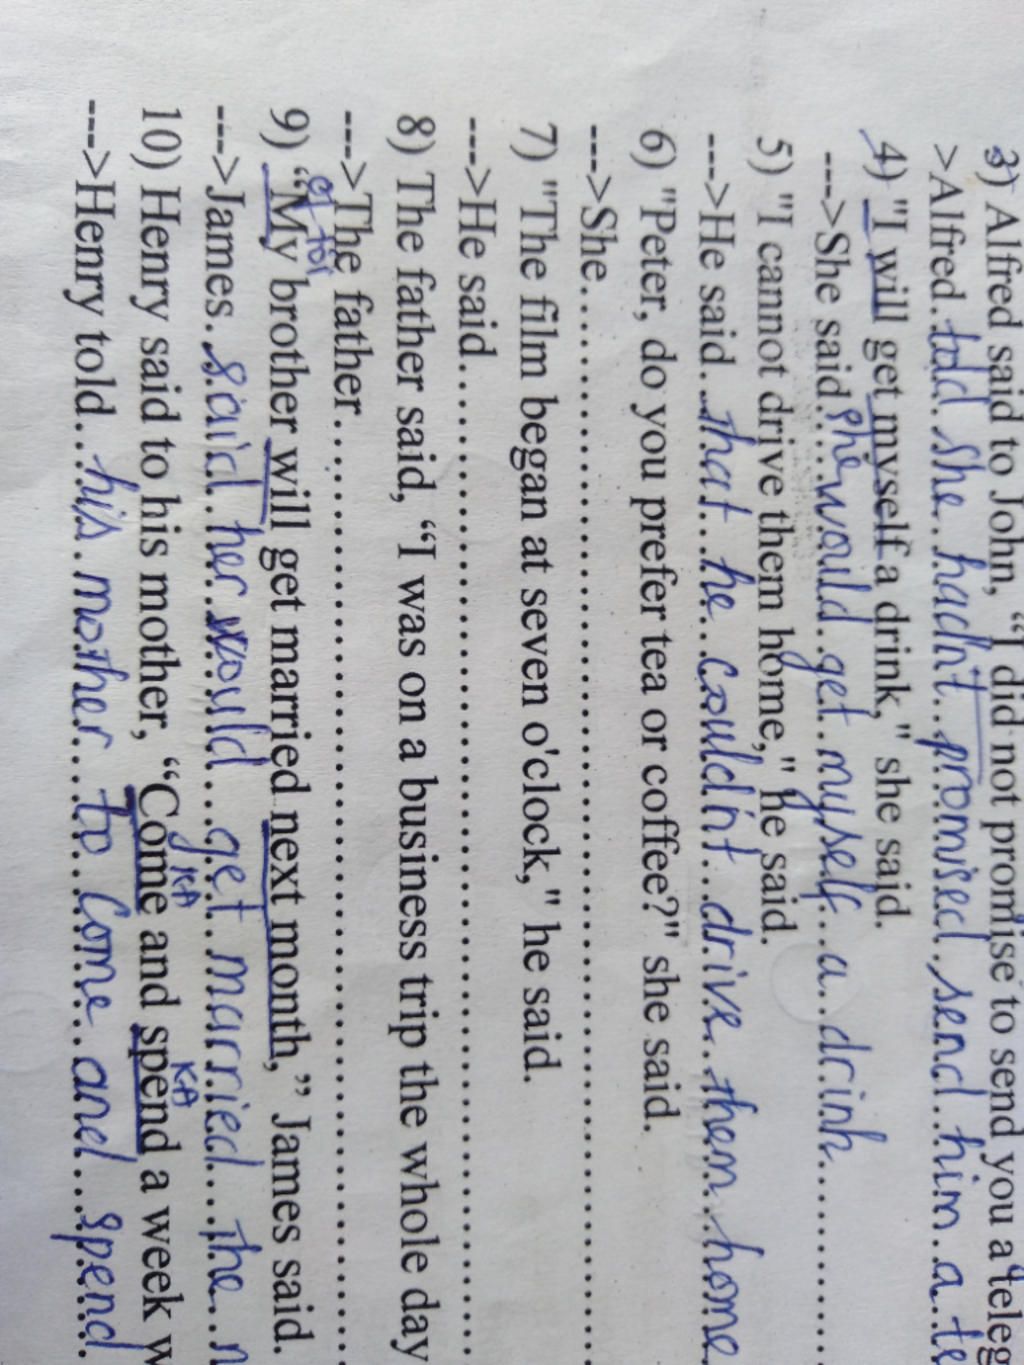 3) Alfred said to John, "I did not promise to send you a teleg
>Alfred.told.she.hadn't..promised.send.him.a.te
4) "I will get myself a drink," she said.
--->She said....she would.get.myself..a..drink..........
5) "I cannot drive them home," he said.
--->He said...that..he..couldn't..drive..them..home.
6) "Peter, do you prefer tea or coffee?" she said.
--->She......................................................
7) "The film began at seven o'clock," he said.
--->He said......................................................
8) The father said, "I was on a business trip the whole day
--->The father......................................................
9) "My brother will get married next month," James said.
--->James..said..her..would...get..married...the..n
10) Henry said to his mother, "Come and spend a week w
--->Henry told...his.mother...to..come..and...spend.